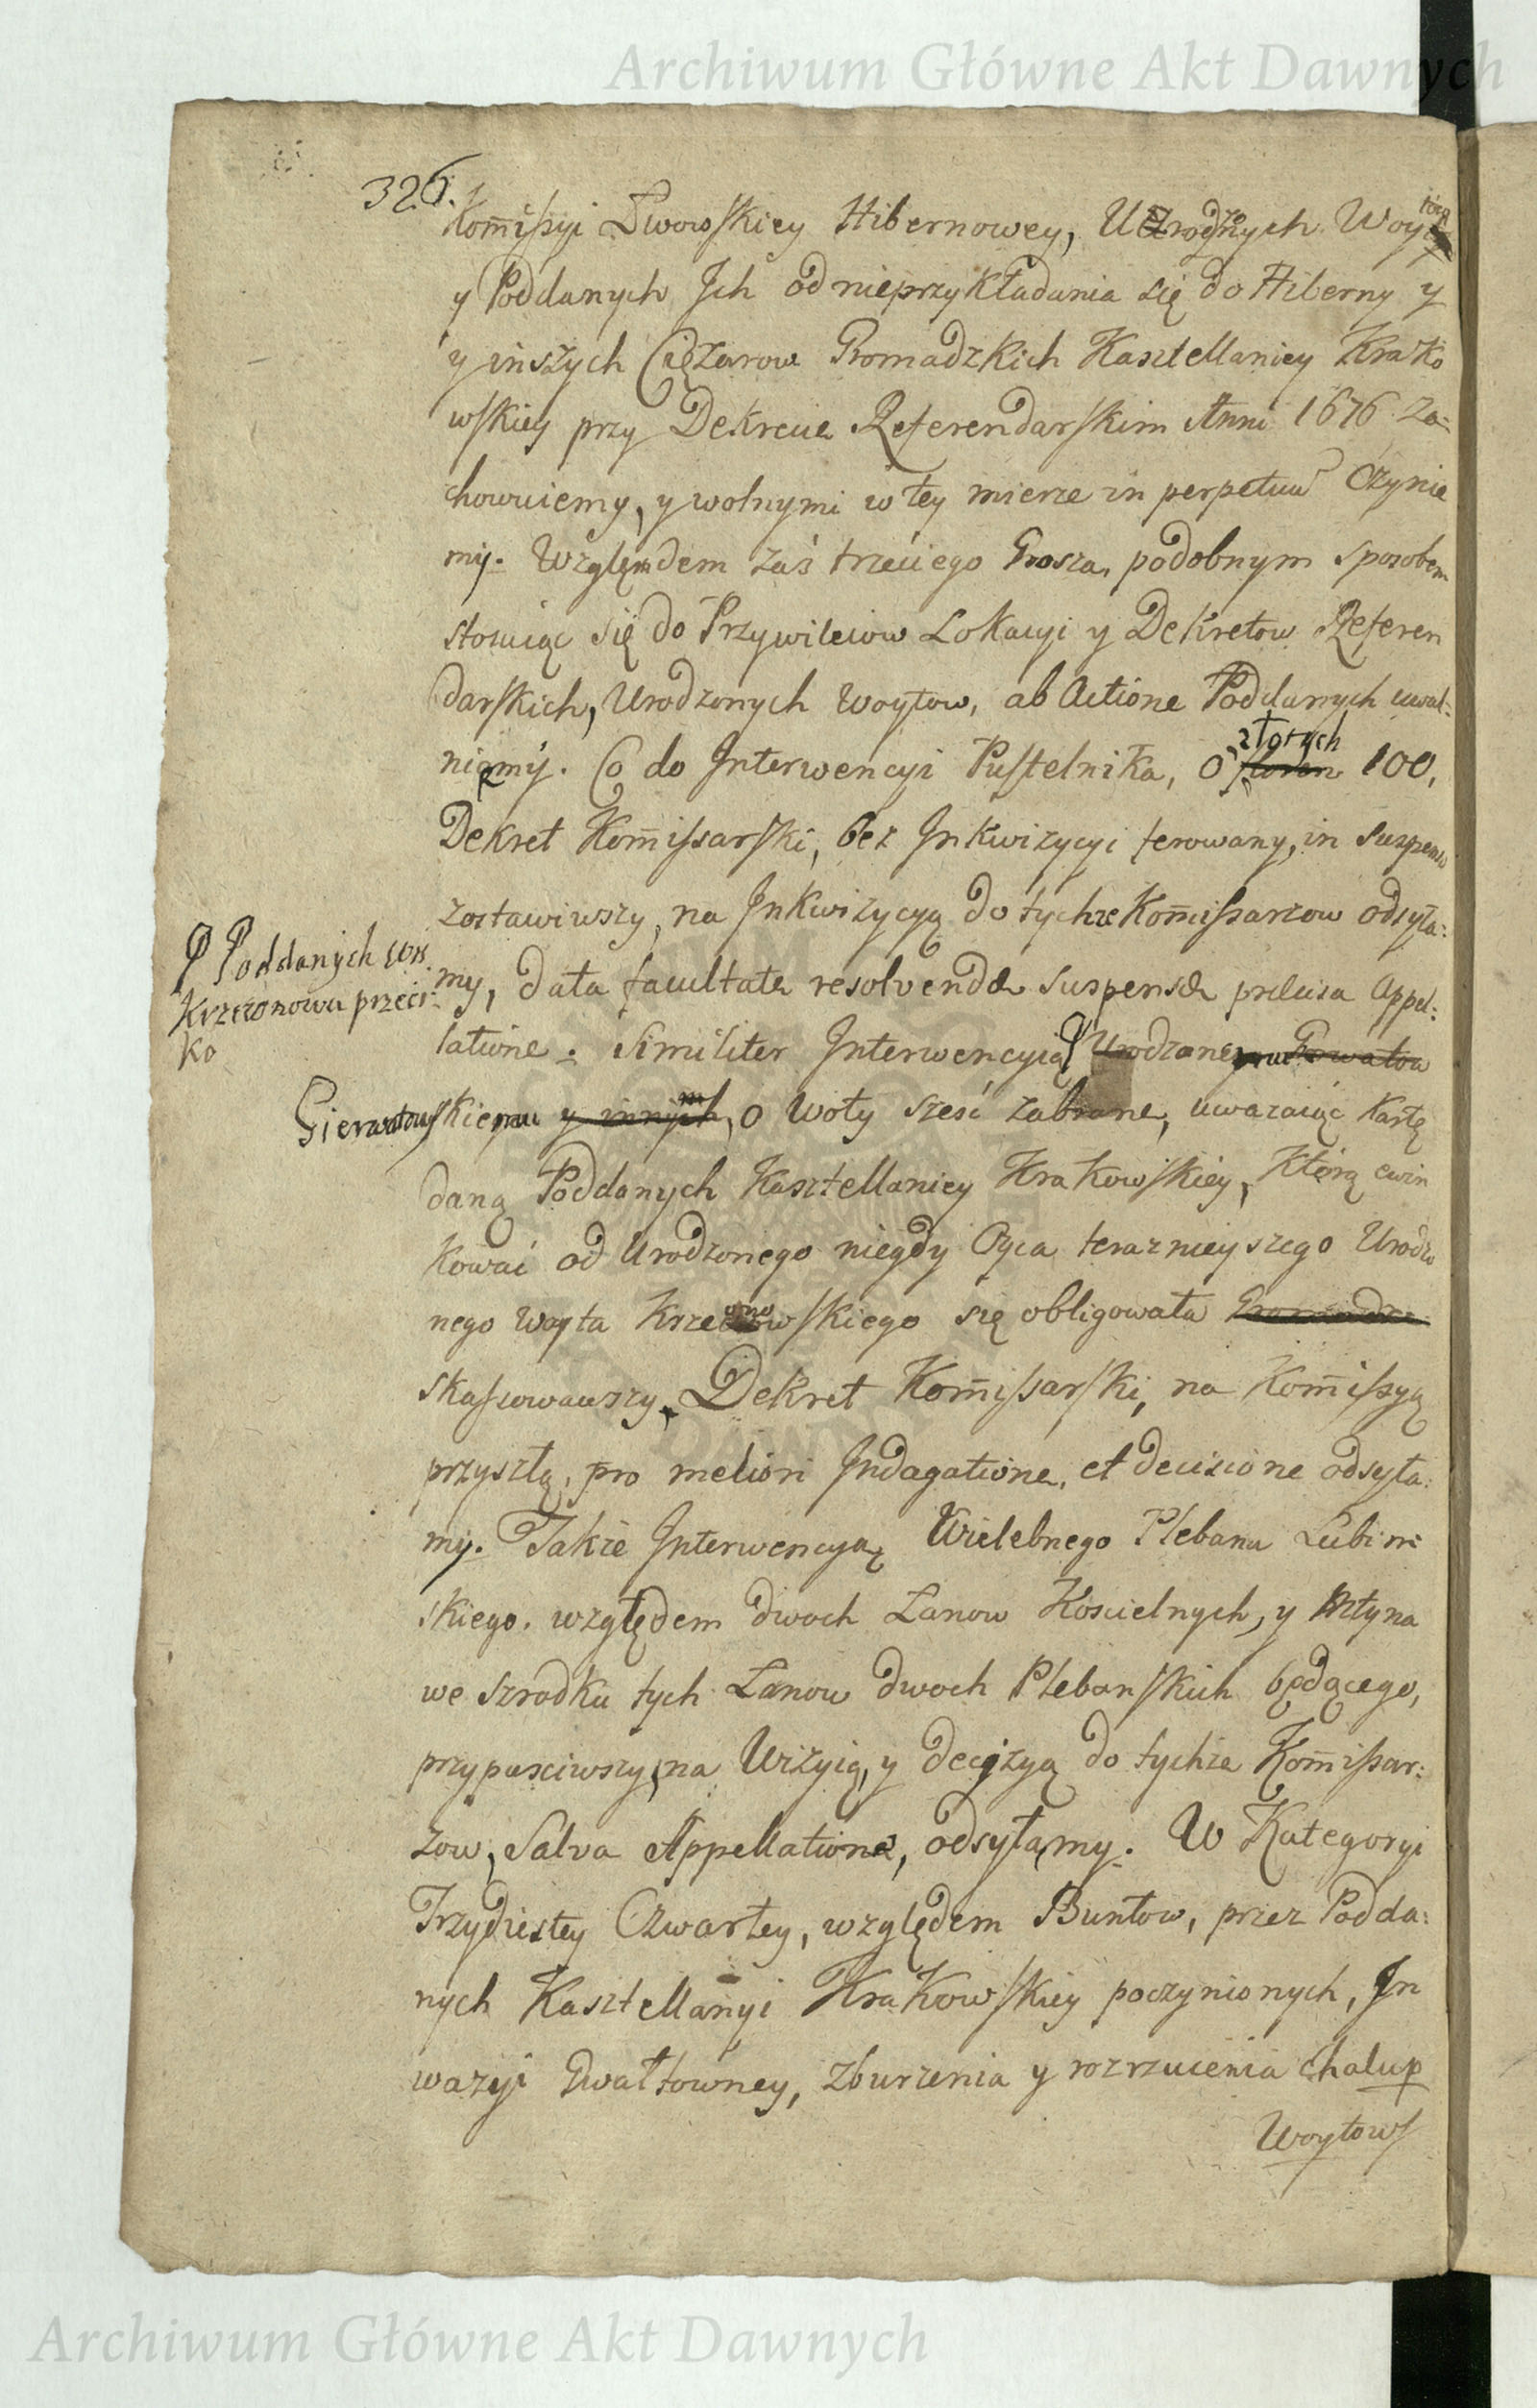 Archiwum Główne Akt Dawnych
326.
Kom̄issyi Lwowskiey Hibernowey, Urodzonych Woytow
y Poddanych Jch od nieprzykładania się do Hiberny y
y inszych Ciężarow Gromadzkich Kasztellaniey Krako
wskiey przy Dekrecie Referendarskim Anni 1676 za=
chowuiemy, y wolnymi w tey mierze in perpetuu̅ Czynie
my. Względem zaś trzeciego Grosza, podobnym sposobem
stosuiąc się do Przywileiow Lokacyi y Dekretow Referen
darskich, Urodzonych Woytow, ab Actione Poddanych uwal:
niemy. Co do Interwencyi Pustelnika, o złotych 100,
Dekret Kom̄issarski, bez Jnkwizycyi ferowany, in suspenso
zostawiwszy, na Jnkwizycyą do tychże Kom̄issarzow odsyła:
my, data facultate resolvendæ suspensæ præcisa Appel:
latione. Similiter Interwencyią Urodzonemu
Poddanych wsi
Krzeczonowa przeci:
ko
Gierwatowskiemu y innym, o Woły sześć zabrane, uważaiąc Kartę
daną Poddanych Kasztellaniey Krakowskiey, Którą ewin
kować od Urodzonego niegdy Oyca teraznieyszego Urodzo
nego Woyta Krzeczonowskiego się obligowała
skassowawszy, Dekret Kom̄issarski, na Kom̄issyą
przyszłą, pro meliori Jndagatione, et decisione odsyła:
my. Także Jnterwencyą Wielebnego Plebana Lubiń
skiego. względem dwoch Łanow Kościelnych, y Młyna
we szrodku tych Łanow dwoch Plebanskich będącego,
przypusciwszy, na Wizyią, y decyzyą do tychże Kom̄issar:
zow, Salva Appellatione, odsyłamy. W Kategoryi
Trzydziestey Czwartey, względem Buntow, przez Podda:
nych Kasztellanyi Krakowskiey poczynionych, Jn
wazyi Gwałtowney, zburzenia y rozrzucenia chalup
Woytow
Archiwum Główne Akt Dawnych